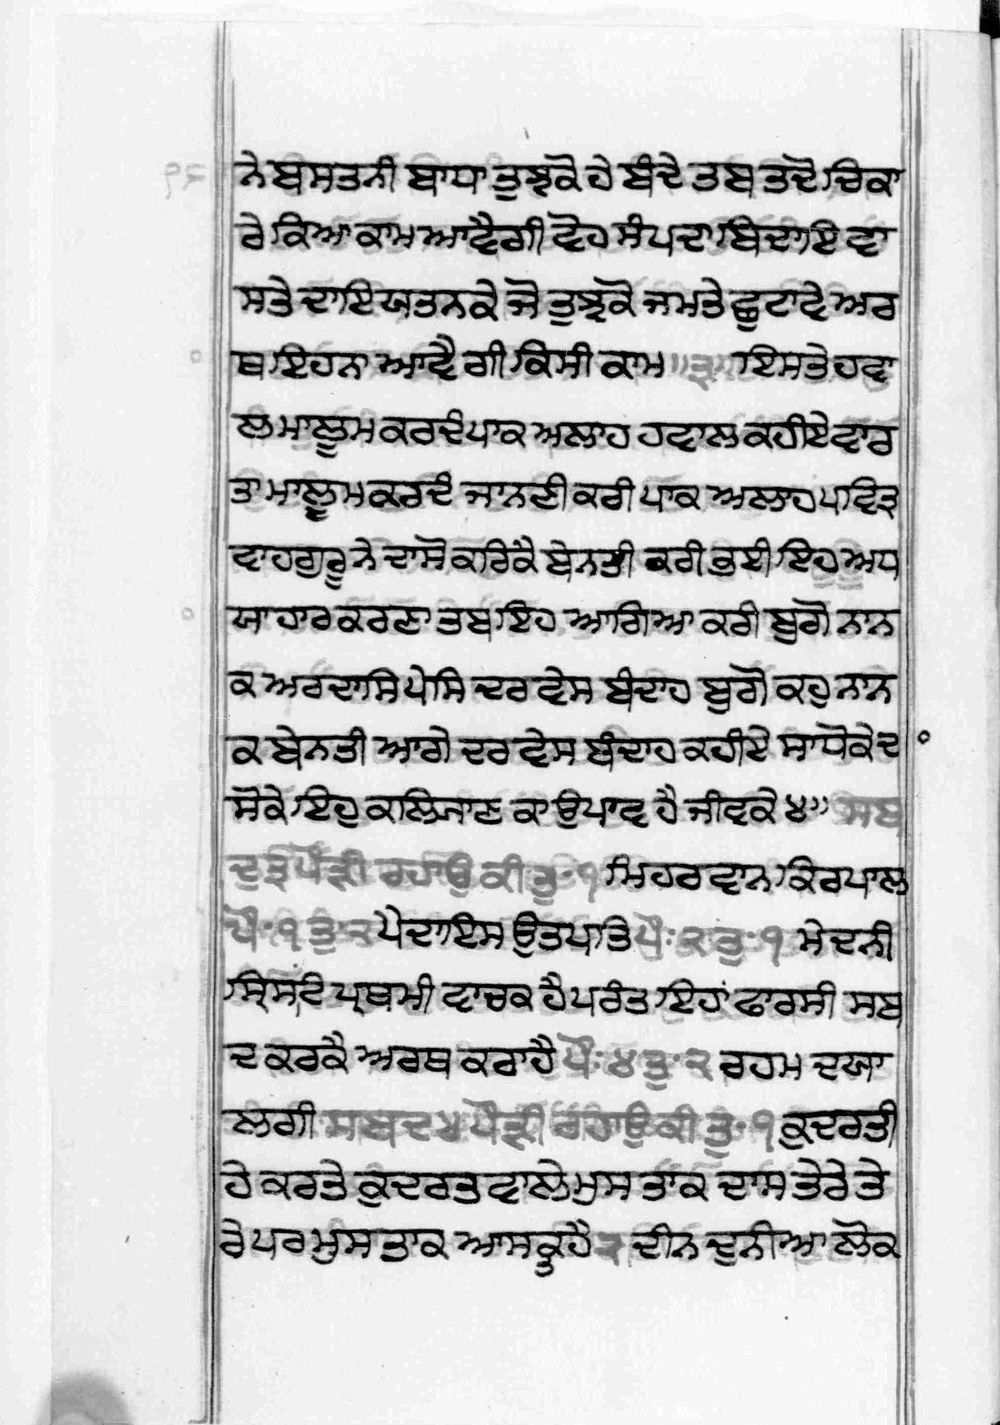 ਨੇ ਬਸਤਨੀ ਬਾਧਾ ਤੁਝਕੋ ਹੇ ਬੰਦੇ ਤਬ ਤਦੋ ਚਿਕਾ
ਰੇ ਕਿਆ ਕਾਮ ਆਵੈਗੀ ਵੋਹ ਸੰਪਦਾ ਬਿਦਾਇ ਵਾ
ਸਤੇ ਦਾਇ ਯਤਨ ਕੇ ਜੋ ਤੁਝਕੋ ਜਮਤੇ ਛੁਟਾਵੇ ਅਰ
ਥ ਇਹ ਨਾ ਆਵੈਗੀ ਕਿਸੀ ਕਾਮ ॥੩॥ ਇਸਤੇ ਹਵਾ
ਲ ਮਾਲੂਮ ਕਰਦੰ ਪਾਕ ਅਲਾਹ ਹਵਾਲ ਕਹੀਏ ਵਾਰ
ਤਾ ਮਾਲੂਮ ਕਰਦੰ ਜਾਨਣੀ ਕਰੀ ਪਾਕ ਅਲਾਹ ਪਵਿਤ੍ਰ
ਵਾਹਗੁਰੂ ਨੇ ਦਾਸੋ ਕਰਿਕੈ ਬੇਨਤੀ ਕਰੀ ਭਈ ਇਹ ਅਧ
ਯਾਹਾਰ ਕਰਣਾ ਤਬ ਇਹ ਆਗਿਆ ਕਰੀ ਬੁਗੋ ਨਾਨ
ਕ ਅਰਦਾਸਿ ਪੇਸਿ ਦਰਵੇਸ ਬੰਦਾਹ ਬੁਗੋ ਕਹੁ ਨਾਨ
ਕ ਬੇਨਤੀ ਆਗੇ ਦਰਵੇਸ ਬੰਦਾਹ ਕਹੀਏ ਸਾਧੋਕੇ ਦ
ਸੋਕੇ ਇਹੁ ਕਲਿਯਾਣ ਕਾ ਉਪਾਵ ਹੈ ਜੀਵਕੇ ੪॥ ਸਬ
ਦੁ ੩ ਪੌੜੀ ਰਹਾਉ ਕੀ ਤੁ੦ ੧ ਮਿਹਰਵਾਨ ਕਿਰਪਾਲ
ਪੌ੦ ੧ ਤੁ੦ ੨ ਪੈਦਾਇਸ ਉਤਪਤਿ ਪੌ੦ ੨ ਤੁ੦ ੧ ਮੇਦਨੀ
ਸ੍ਰਿਸਟਿ ਪ੍ਰਥਮੀ ਵਾਚਕ ਹੈ ਪਰੰਤ ਇਹਾਂ ਫਾਰਸੀ ਸਬ
ਦ ਕਰਕੈ ਅਰਥ ਕਰਾ ਹੈ ਪੌ੦ ੪ ਤੁ੦ ੨ ਰਹਮ ਦਯਾ
ਲਗੀ ਸਬਦ ੪ ਪੌੜੀ ਰਹਾਉ ਕੀ ਤੁ੦ ੧ ਕੁਦਰਤੀ
ਹੇ ਕਰਤੇ ਕੁਦਰਤ ਵਾਲੇ ਮੁਸਤਾਕ ਦਾਸ ਤੇਰੇ ਤੇ
ਰੇ ਪਰ ਮੁਸਤਾਕ ਆਸਕੁ ਹੈ ੨ ਦੀਨ ਦੁਨੀਆ ਲੋਕ